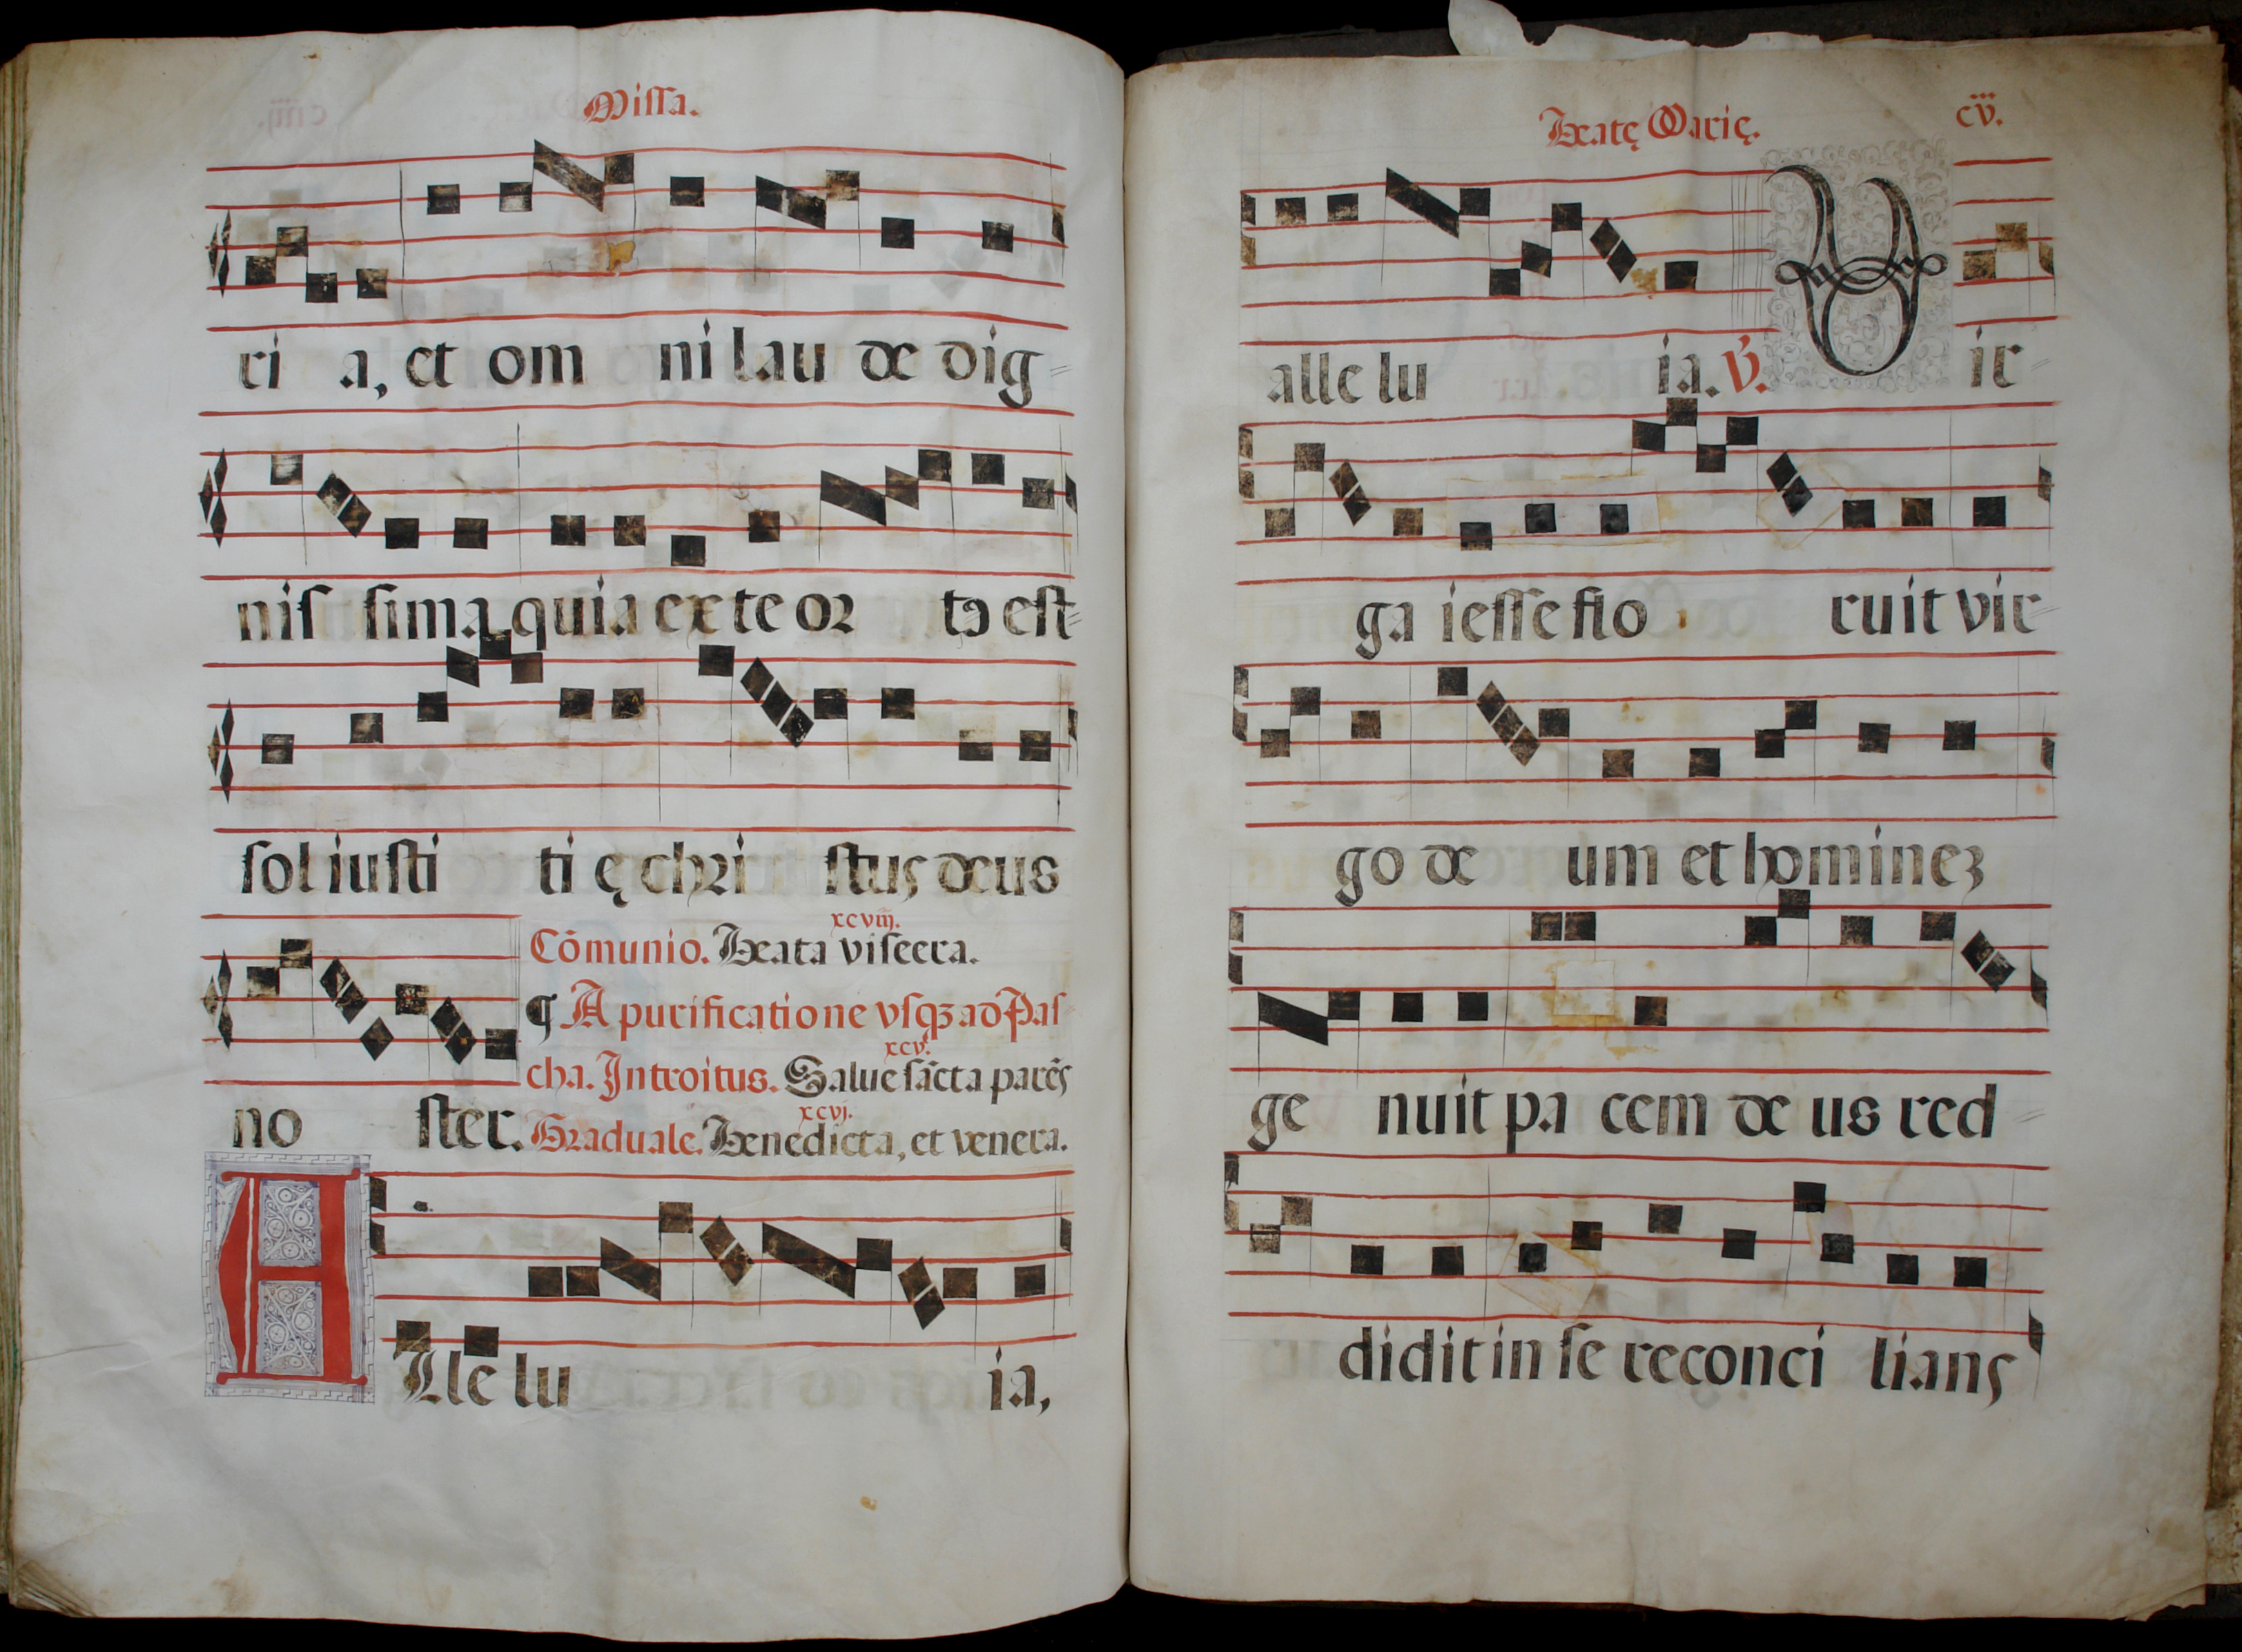 Missa.
ri a, et om ni lau de dig-
nis sima quia ex te or to est-
sol iusti ti ę chri stus deus
xcviij.
Cōmunio. Beata viscera.
no ster.
¶ A purificatione vsqꝫ ad Pas
xcv.
cha. Introitus. Salue sācta parēs
xcvj.
Graduale. Benedicta, et venera.
Alle lu ia,
Beatę Marię. cv.
alle lu ia. ℣. Vir-
ga iesse flo ruit vir-
go de um et homineꝫ
ge nuit pa cem de us red-
didit in se reconci lians